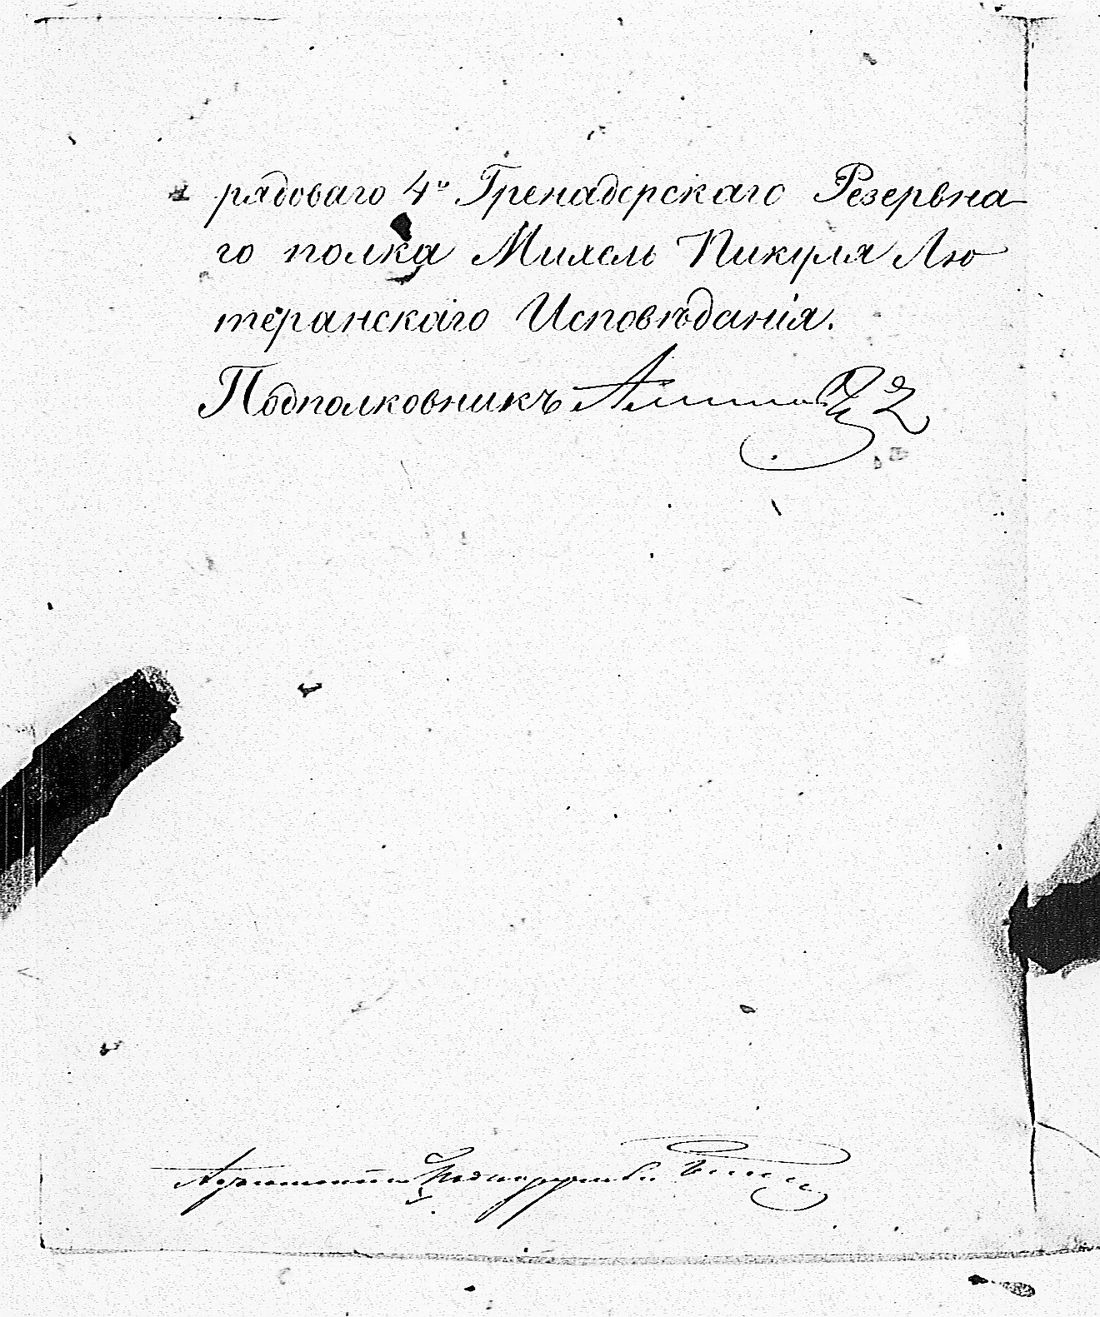 рядоваго 4го Гренадерскаго Резервна-
го полка Михель Пикуля Лю-
теранскаго Исповѣданія.
Подполковникъ